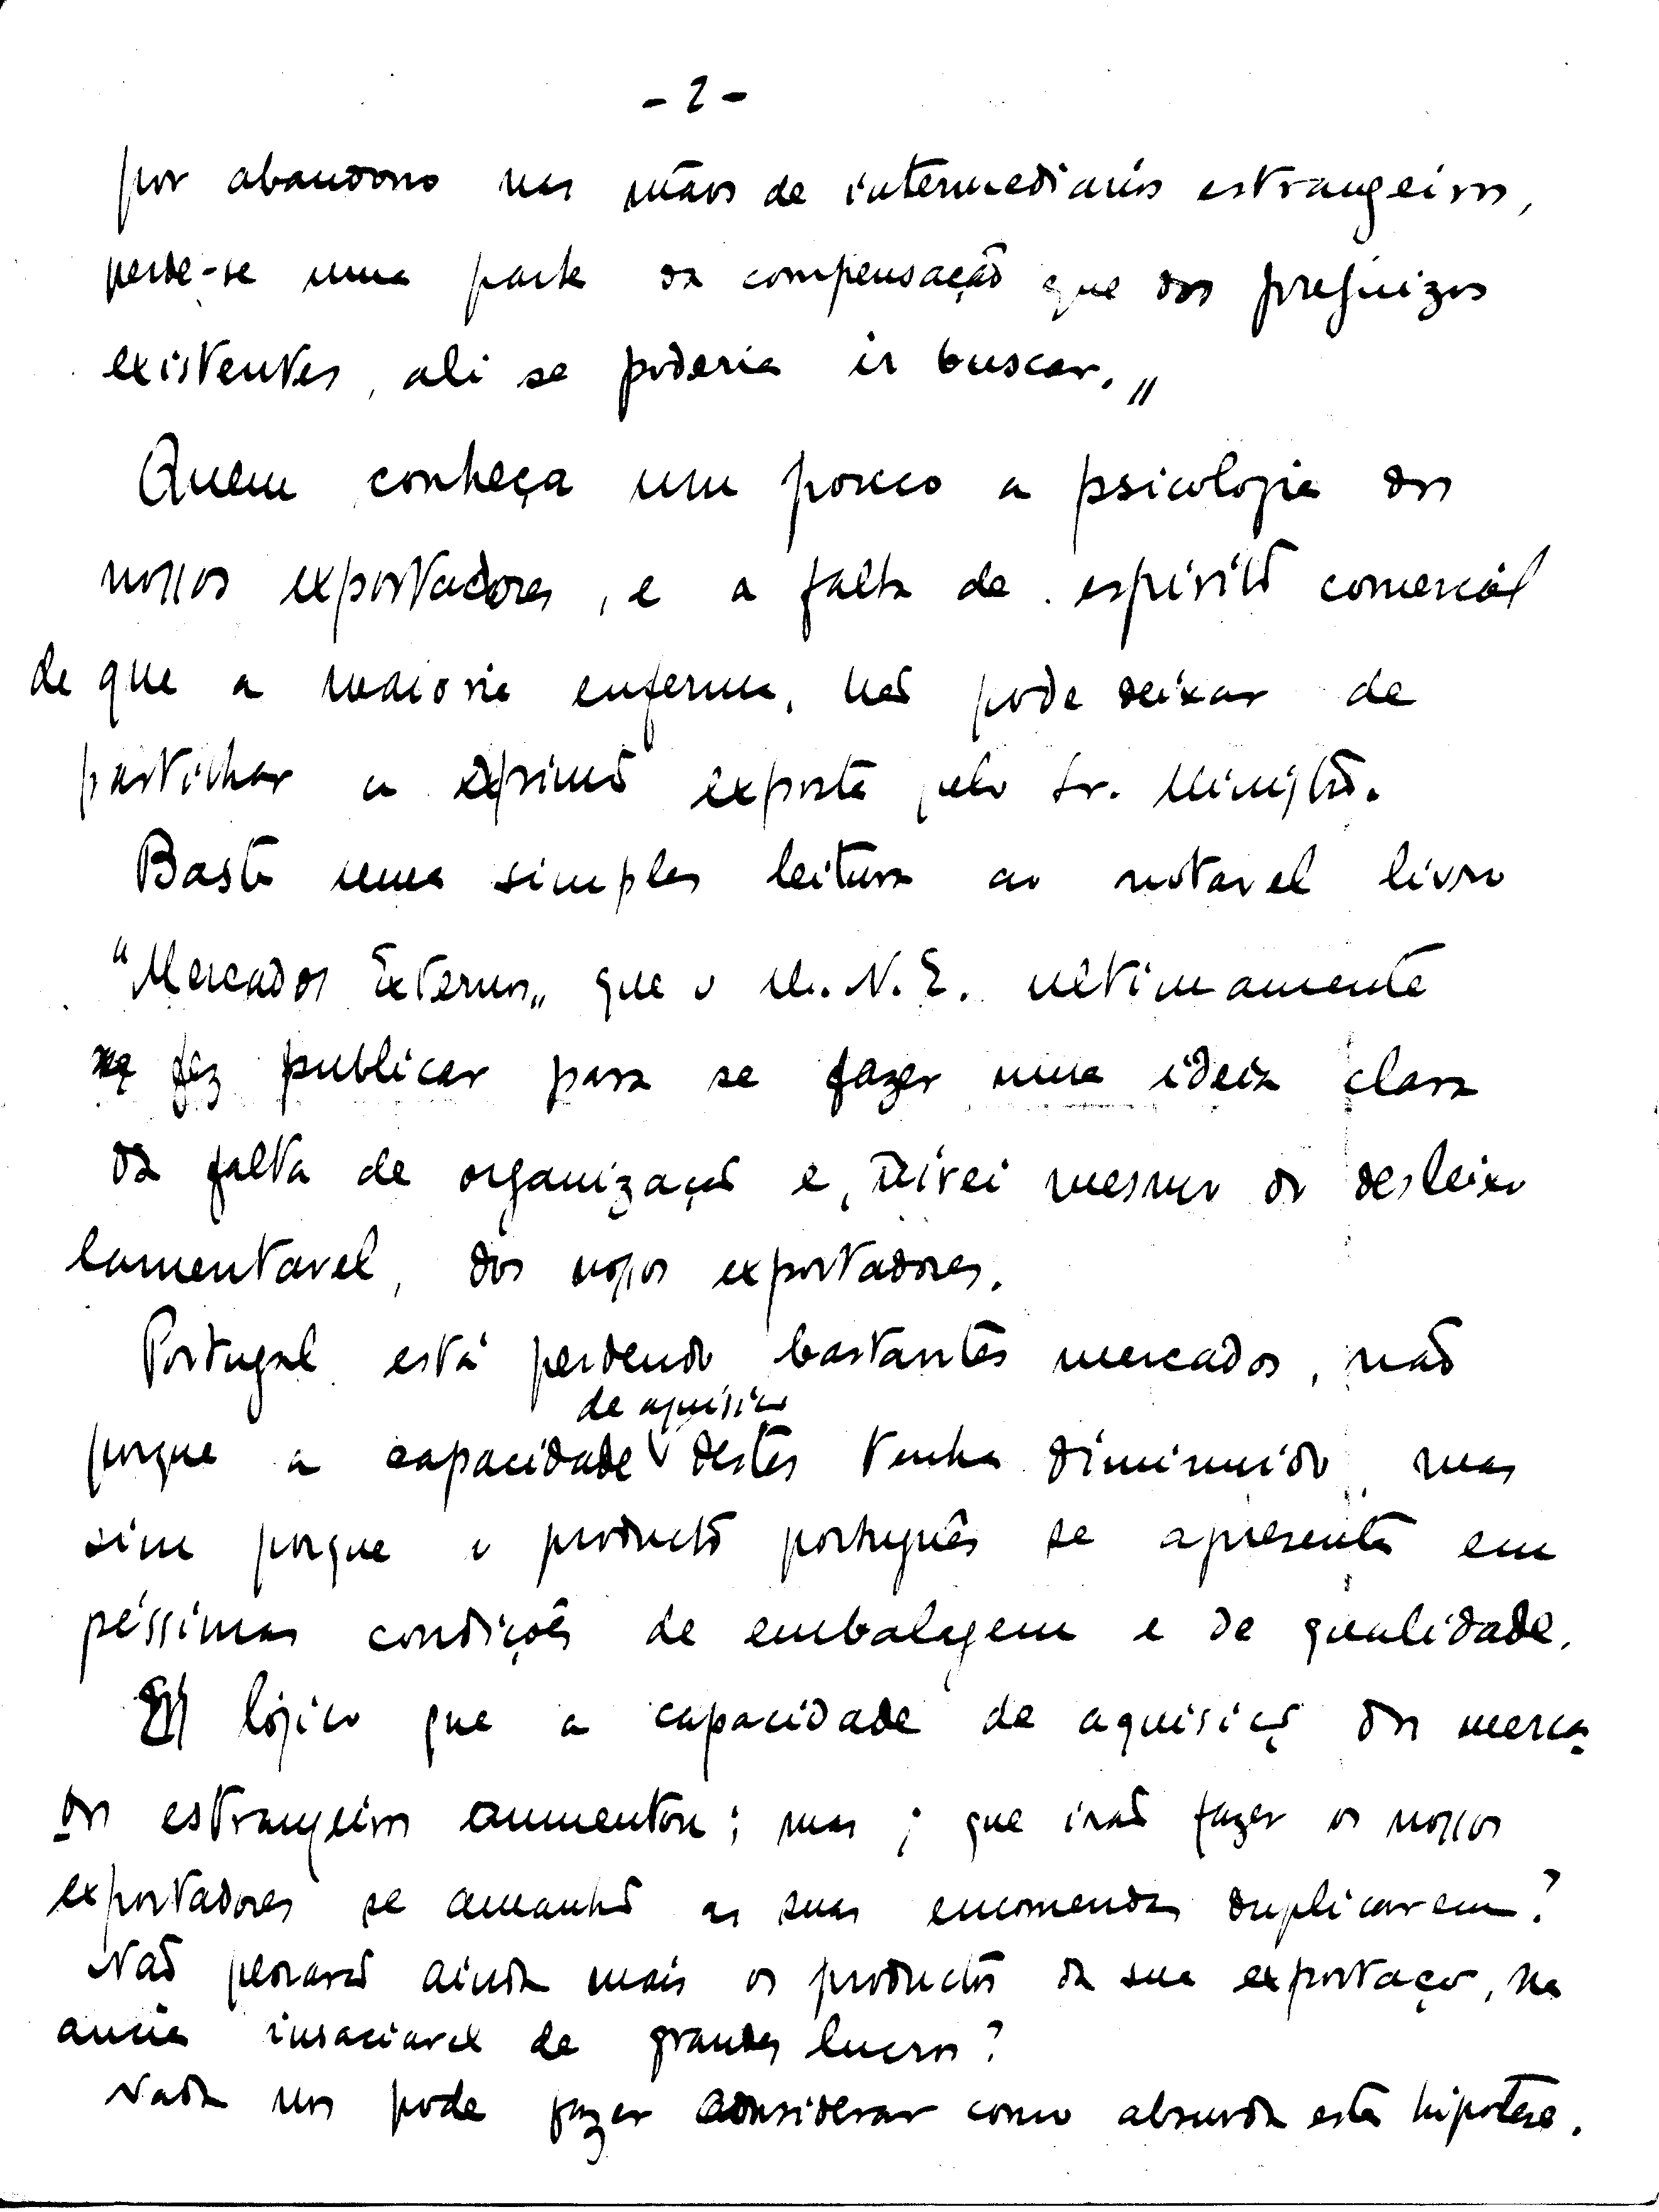 - 2 -
por abandono nas mãos de intermediarios estrangeiros,
perde-se uma parte da compensação que dos prejuizos
existentes, ali se poderia ir buscar.„
Quem conheça um pouco a psicologia dos
nossos exportadores, e a falta de espirito comercial
de que a maioria enferma, não pode deixar de
partilhar a opinião exposta pelo Sr. Ministro.
Basta uma simples leitura ao notavel livro
"Mercados Externos„ que o M.N.E. ultimamente
fez publicar para se fazer uma ideia clara
da falta de organização e, direi mesmo do desleixo
lamentavel, dos nossos exportadores.
Portugal está perdendo bastantes mercados, não
de aquisição
porque a capacidade destes tenha diminuido mas
sim porque o producto português se apresenta em
péssimas condições de embalagem e de qualidade.
lógico que a capacidade de aquisição dos merca
dos estrangeiros aumentou; mas ¿ que irão fazer os nossos
exportadores se amanhã as suas encomendas duplicarem?
Não piorarão ainda mais os productos da sua exportação, na
ancia insaciavel de grandes lucros?
Nada nos pode fazer considerar como absurda esta hipotese.